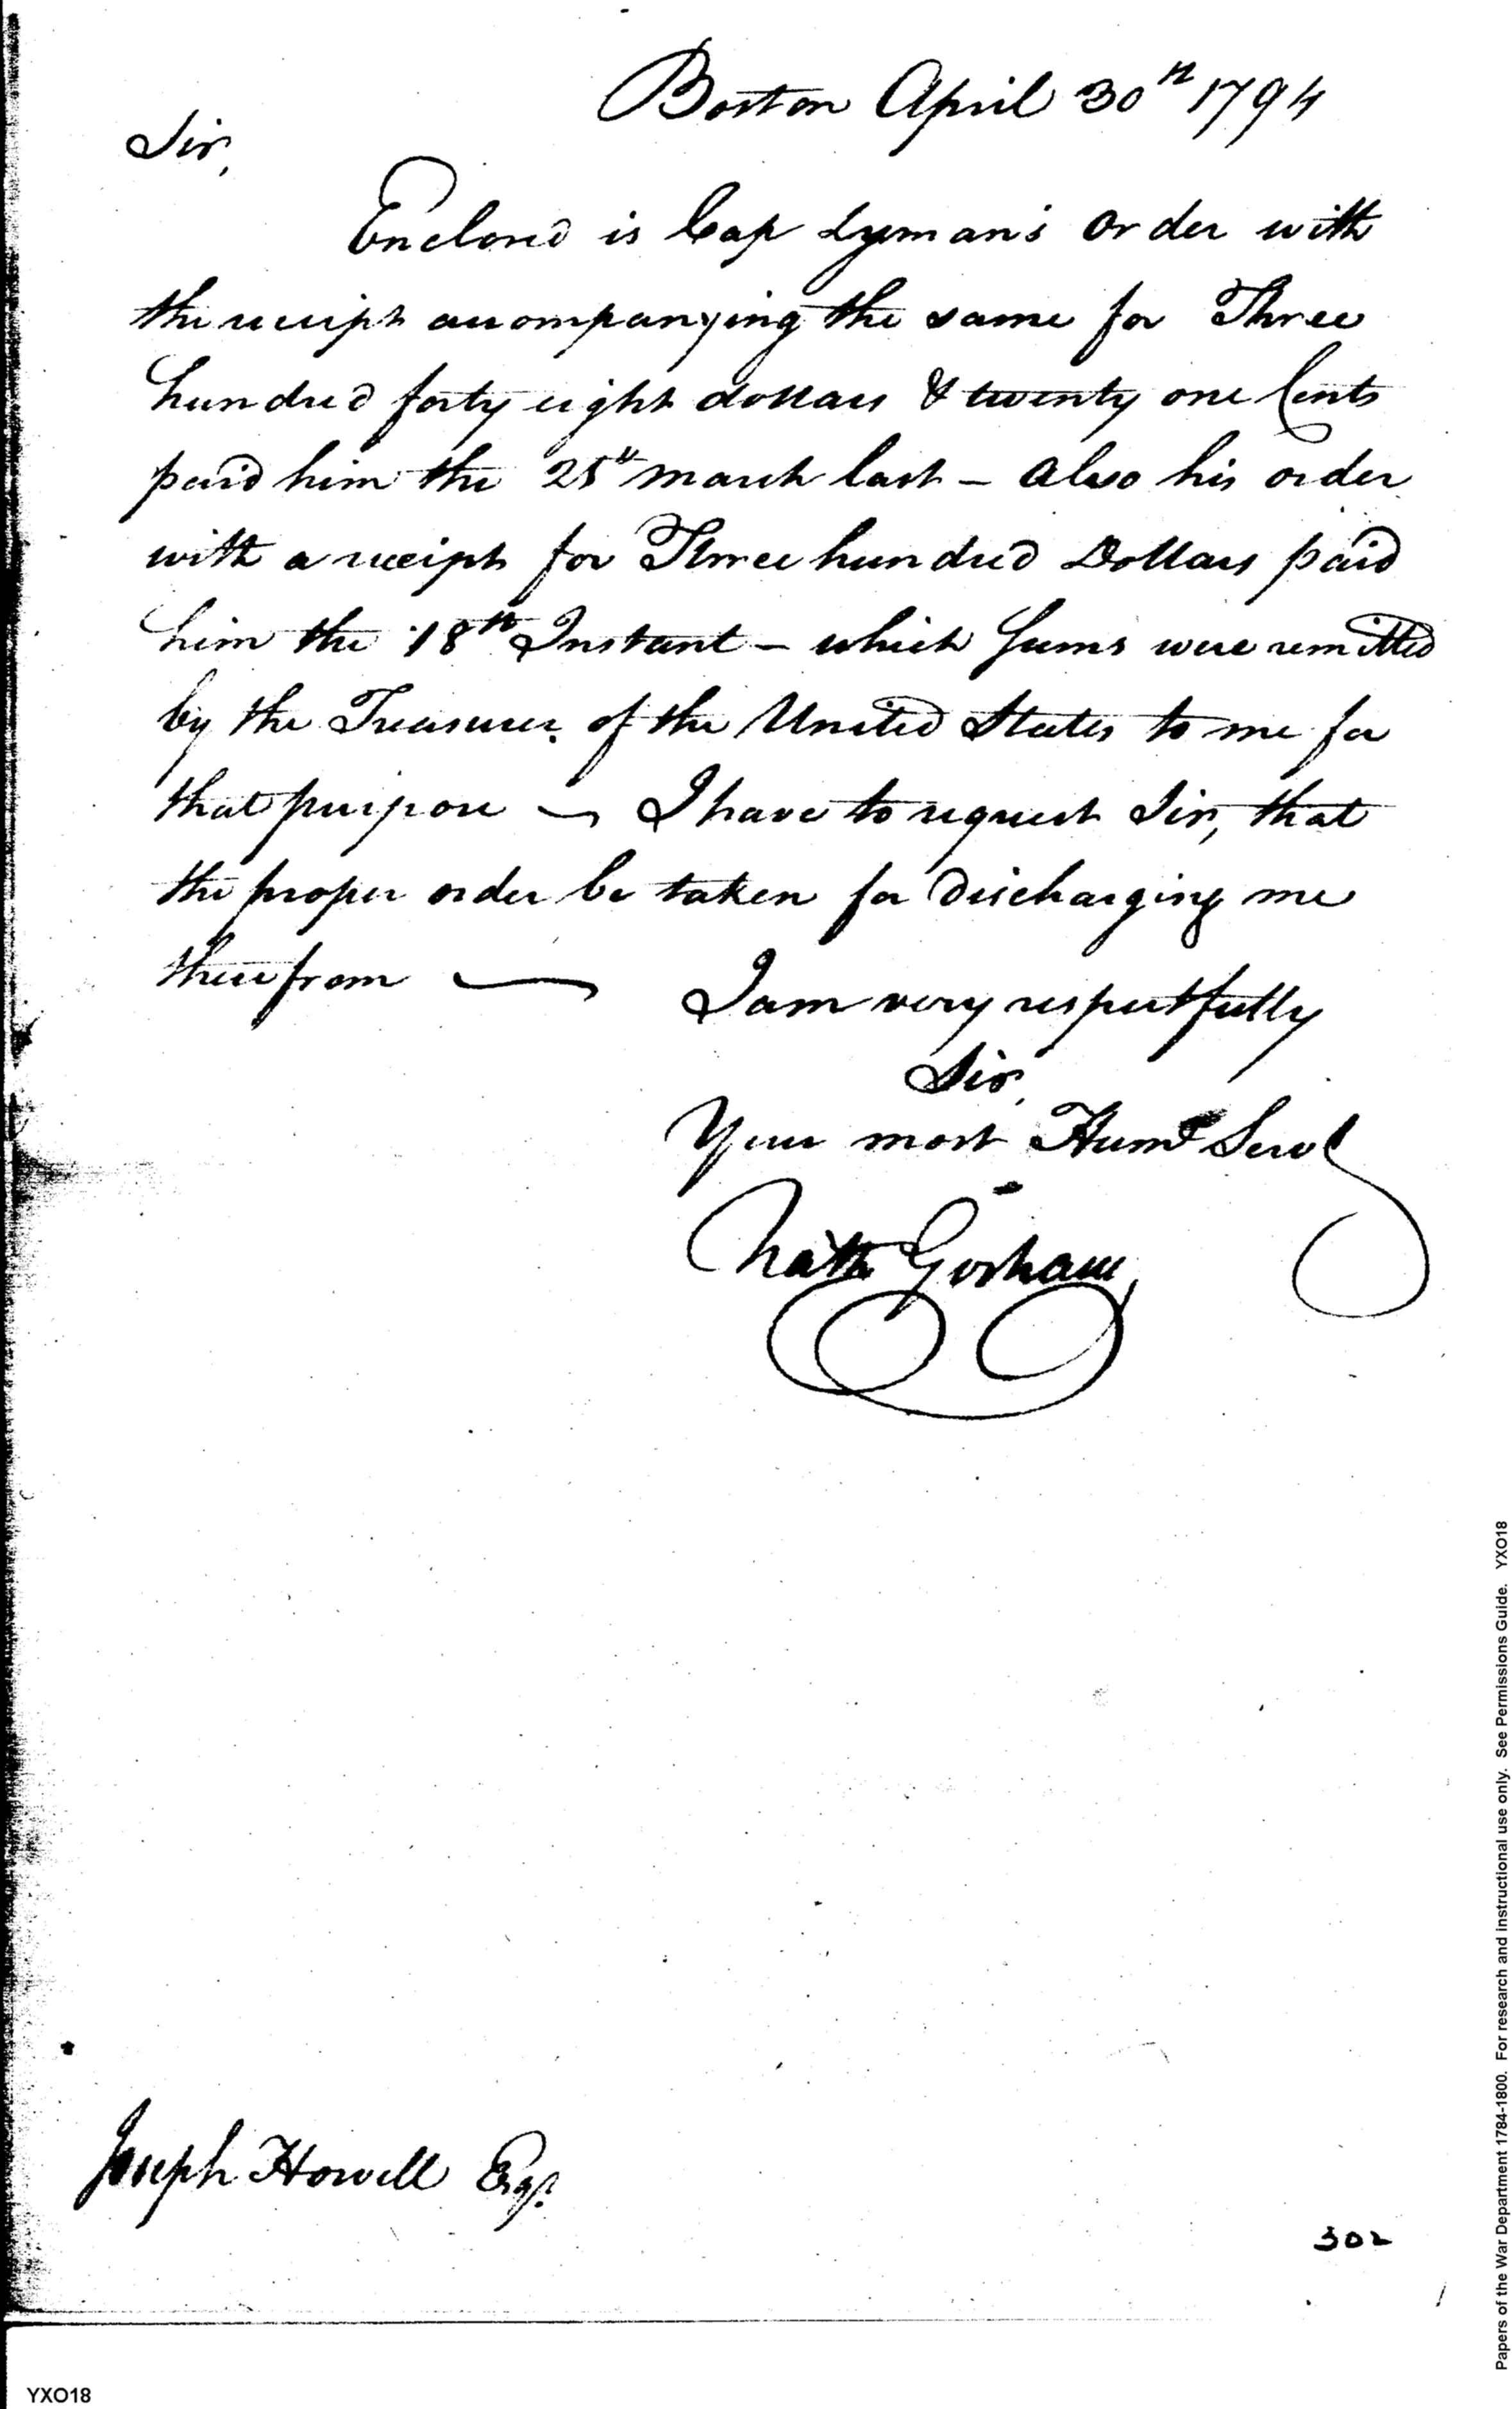 Boston April 30th 1794
Sir,
Enclosed is Cap Lyman's order with
the receipt accompanying the same for Three
hundred forty eight dollars & twenty one Cents
paid him the 25th march last – also his order
with a receipt for Three hundred Dollars paid
him the 18th Instant – which Sums were remitted
by the Treasurer of the United States to me for
that purpose — I have to request Sir, that
the proper order be taken for discharging me
therefrom —
I am very respectfully
Sir,
Your most Humb Servt
Nath Gorham
Joseph Howell Esqr.
302
YXO18
Papers of the War Department 1784-1800. For research and instructional use only. See Permissions Guide. YXO18